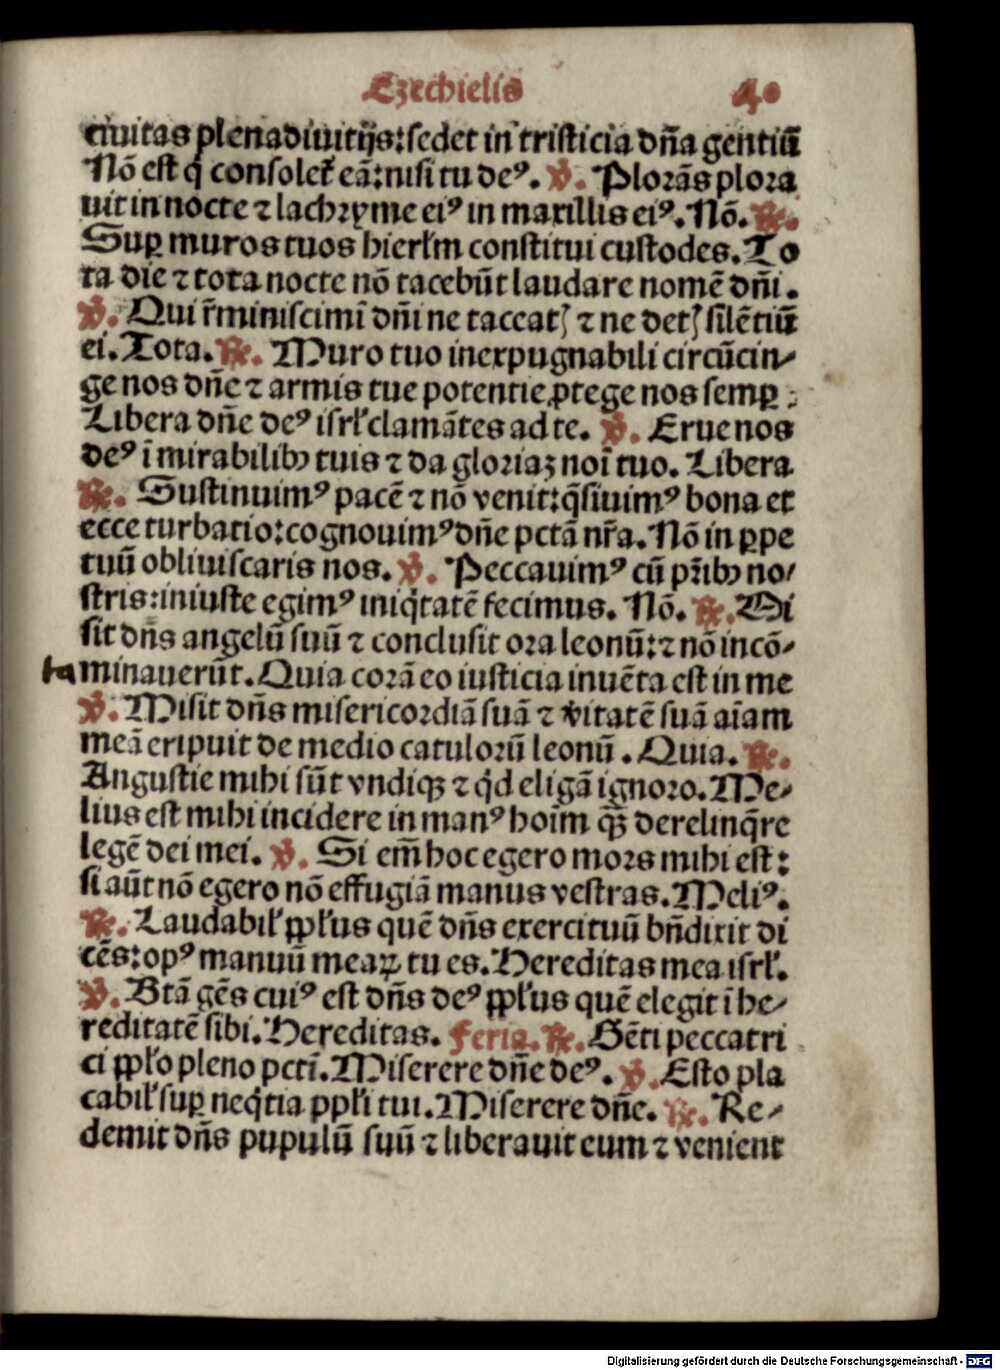 Ezechielis 40
ciuitas plena diuitijs: sedet in tristicia dn̄a gentiū
Nō est q̄ consolet̄ eā: nisi tu deꝰ. ℣. Plorās plora
uit in nocte ⁊ lachryme eiꝰ in maxillis eiꝰ. Nō. ℟.
Suꝑ muros tuos hierl̄m constitui custodes. To
ta die ⁊ tota nocte nō tacebūt laudare nomē dn̄i.
℣. Qui r̄miniscimī dn̄i ne taccatꝭ ⁊ ne detꝭ silētiū
ei. Tota. ℟. Muro tuo inexpugnabili circūcin⸗
ge nos dn̄e ⁊ armis tue potentie ꝓtege nos semꝑ :
Libera dn̄e deꝰ isrl̄ clamātes ad te. ℣. Erue nos
deꝰ ī mirabilibꝫ tuis ⁊ da gloriaꝫ noī tuo. Libera
℟. Sustinuimꝰ pacē ⁊ nō venit: q̄siuimꝰ bona et
ecce turbatio: cognouimꝰ dn̄e pctā nr̄a. Nō in ꝑpe
tuū obliuiscaris nos. ℣. Peccauimꝰ cū pr̄ibꝫ no⸗
stris: iniuste egimꝰ iniq̄tatē fecimus. Nō. ℟. Mi
sit dn̄s angelū suū ⁊ conclusit ora leonū: ⁊ nō incō⸗
ta minauerūt. Quia corā eo iusticia inuēta est in me
℣. Misit dn̄s misericordiā suā ⁊ v̄itatē suā aīam
meā eripuit de medio catulorū leonū. Quia. ℟.
Angustie mihi sūt vndiqꝫ ⁊ qd̄ eligā ignoro. Me⸗
lius est mihi incidere in manꝰ hoīm q̄ꝫ derelinq̄re
legē dei mei. ℣. Si em̄ hoc egero mors mihi est:
si aūt nō egero nō effugiā manus vestras. Meliꝰ.
℟. Laudabil̄ ppl̄us quē dn̄s exercituū bn̄dixit di
cēs: opꝰ manuū meaꝝ tu es. Hereditas mea isrl̄.
℣. Btā gēs cuiꝰ est dn̄s deꝰ ppl̄us quē elegit ī he⸗
reditatē sibi. Hereditas. Feria. ℟. Gēti peccatri
ci ppl̄o pleno pctī. Miserere dn̄e deꝰ. ℣. Esto pla
cabil̄ suꝑ neq̄tia ppl̄i tui. Miserere dn̄e. ℟. Re⸗
demit dn̄s pupulū suū ⁊ liberauit eum ⁊ venient
Digitalisierung gefördert durch die Deutsche Forschungsgemeinschaft - DFG